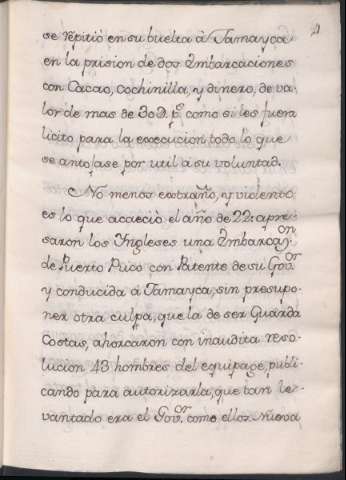 se repitiò en su buelta à Jamayca
en la prision de dos Embarcaciones
con Cacao, cochinilla, y dinero, de va-
lor de mas de 30D. p.s como si les fuera
licito para la execucion todo lo que
se antojase por util à su voluntad.
No menos extraño, y violento
es lo que acaeciò el año de 22: apre-
saron los Yngleses una Embarcaç.on
de Puerto Rico con Patente de su Gov.or
y conducida à Jamayca, sin presupo-
ner otra culpa, que la de ser Guarda
Costas, ahorcaron con inaudita reso-
lucion 43 hombres del equipage, publi-
cando para autorizarla, que tan le-
vantado era el Gov.or como ellos. Nueva